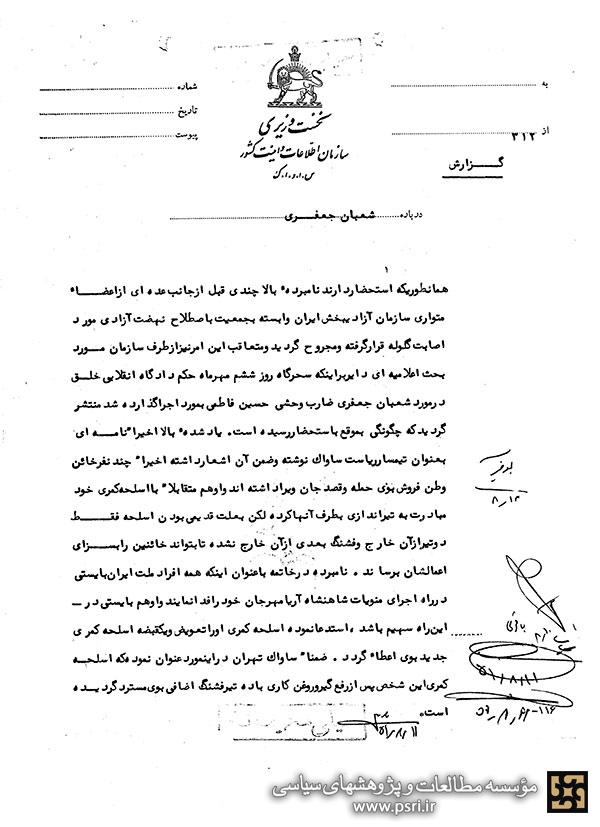 نخست وزیری
سازمان اطلاعات و امنیت کشور
س.ا.و.ا.ک
به
از ۳۱۲
گزارش
شماره
تاریخ
پیوست
درباره شعبان جعفری
همانطوریکه استحضار دارند نامبرده بالا چندی قبل از جانب عده ای از اعضاء
متواری سازمان آزادیبخش ایران وابسته بجمعیت باصطلاح نهضت آزادی مورد
اصابت گلوله قرار گرفته ومجروح گردید ومتعاقب این امر نیز از طرف سازمان مورد
بحث اعلامیه ای دایر براینکه سحرگاه روز ششم مهرماه حکم دادگاه انقلابی خلق
در مورد شعبان جعفری ضارب وحشی حسین فاطمی بمورد اجرا گذارده شد منتشر
گردید که چگونگی بموقع باستحضار رسیده است. یاد شده بالا اخیرا" نامه ای
بعنوان تیمسار ریاست ساواک نوشته وضمن آن اشعار داشته اخیرا" چند نفر خائن
وطن فروش بوی حمله وقصد جان ویرا داشته اند واوهم متقابلا" با اسلحه کمری خود
مبادرت به تیراندازی بطرف آنها کرده لکن بعلت قدیمی بودن اسلحه فقط
دوتیر از آن خارج وفشنگ بعدی از آن خارج نشده تا بتواند خائنین را بسزای
اعمالشان برساند. نامبرده در خاتمه باعنوان اینکه همه افراد ملت ایران بایستی
در راه اجرای منویات شاهنشاه آریامهر جان خود را فدا نمایند واوهم بایستی در -
این راه سهیم باشد، استدعا نموده اسلحه کمری اورا تعویض ویکقبضه اسلحه کمری
جدید بوی اعطاء گردد. ضمنا" ساواک تهران در اینمورد عنوان نموده که اسلحه
کمری این شخص پس از رفع گیر وروغن کاری با ده تیر فشنگ اضافی بوی مسترد گردیده
است.
۵۱/۸/۱۱
مؤسسه مطالعات و پژوهشهای سیاسی
www.psri.ir